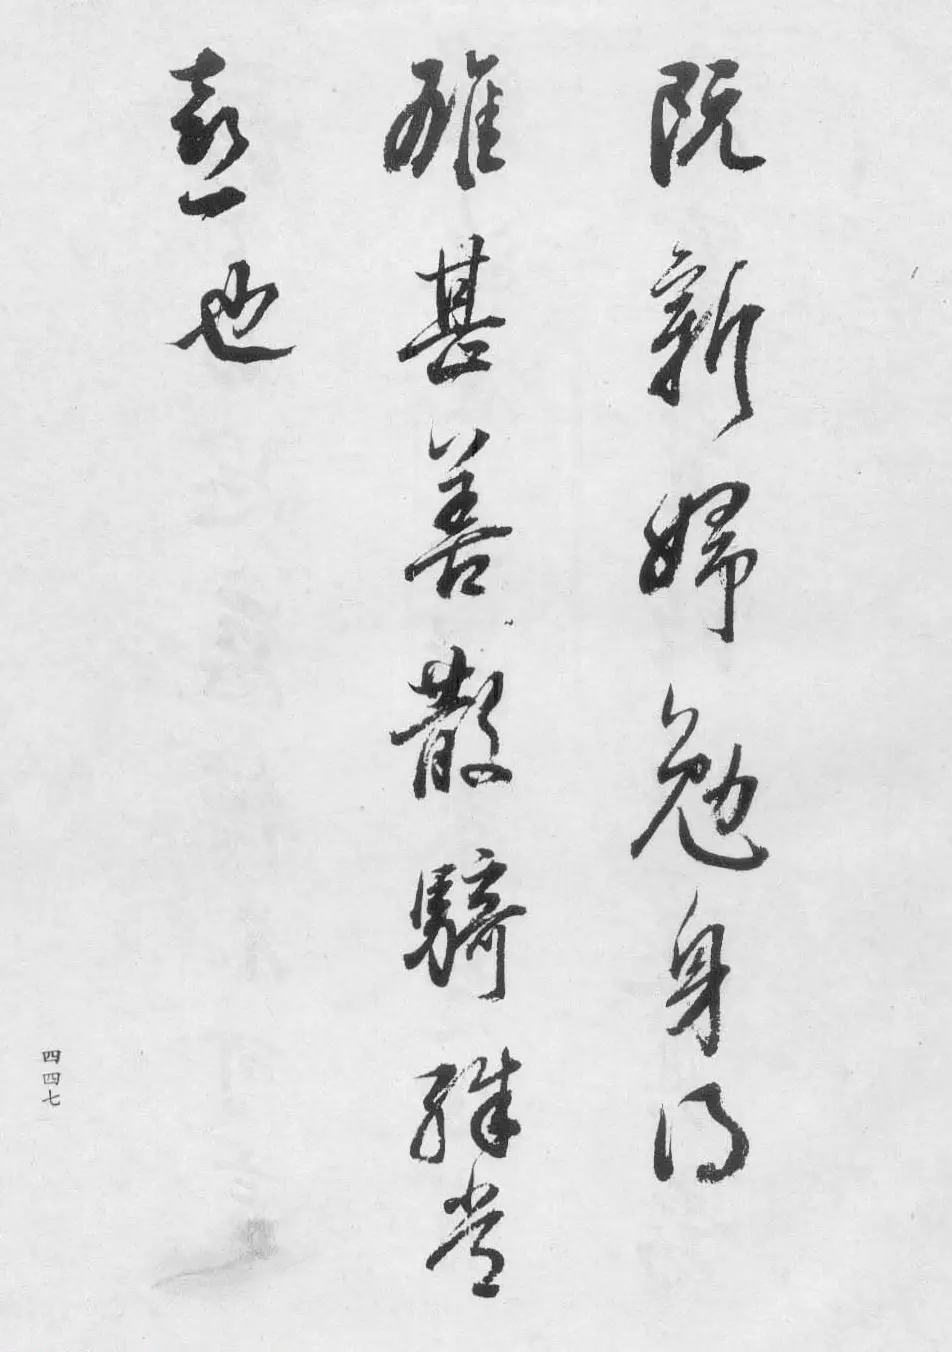 阮新婦勉身得
雄甚善散騎殊當
憙也
四四七